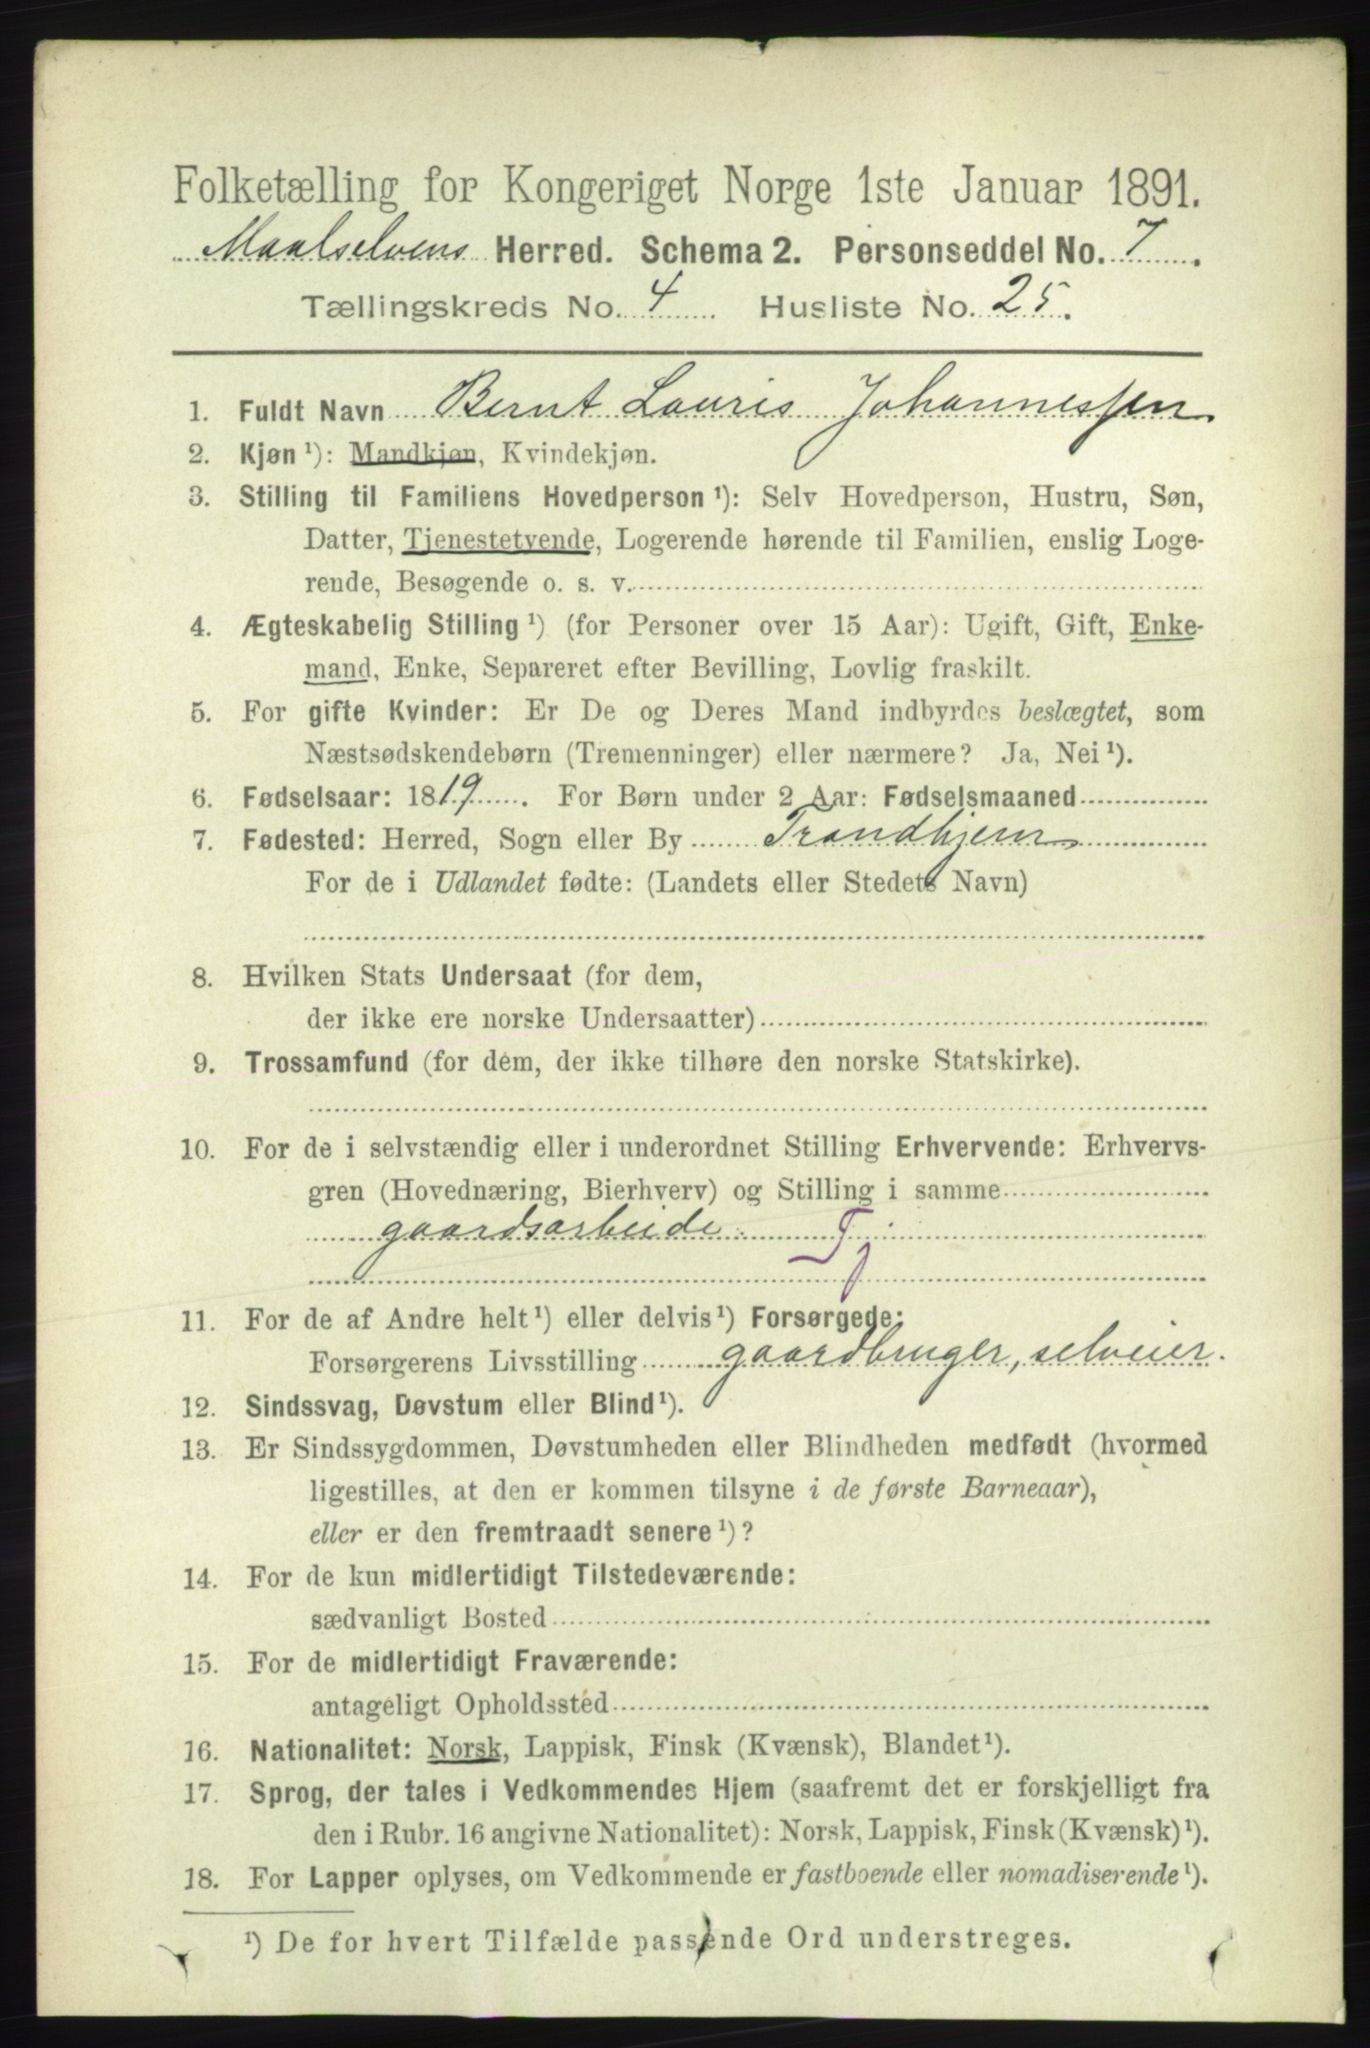 Folketælling for Kongeriget Norge 1ste Januar 1891.
Maalselvens Herred. Schema 2. Personseddel No. 7.
Tællingskreds No. 4 Husliste No. 25.
1. Fuldt Navn Bernt Lauris Johannessen
2. Kjøn ¹): Mandkjøn, Kvindekjøn.
3. Stilling til Familiens Hovedperson ¹): Selv Hovedperson, Hustru, Søn,
Datter, Tjenestetyende, Logerende hørende til Familien, enslig Loge-
rende, Besøgende o. s. v.
4. Ægteskabelig Stilling ¹) (for Personer over 15 Aar): Ugift, Gift, Enke-
mand, Enke, Separeret efter Bevilling, Lovlig fraskilt.
5. For gifte Kvinder: Er De og Deres Mand indbyrdes beslægtet, som
Næstsødskendebørn (Tremenninger) eller nærmere? Ja, Nei ¹).
6. Fødselsaar: 1819. For Børn under 2 Aar: Fødselsmaaned
7. Fødested: Herred, Sogn eller By Trondhjem
For de i Udlandet fødte: (Landets eller Stedets Navn)
8. Hvilken Stats Undersaat (for dem,
der ikke ere norske Undersaatter)
9. Trossamfund (for dem, der ikke tilhøre den norske Statskirke).
10. For de i selvstændig eller i underordnet Stilling Erhvervende: Erhvervs-
gren (Hovednæring, Bierhverv) og Stilling i samme
gaardsarbeide. Tj
11. For de af Andre helt ¹) eller delvis ¹) Forsørgede:
Forsørgerens Livsstilling gaardbruger, selveier.
12. Sindssvag, Døvstum eller Blind ¹).
13. Er Sindssygdommen, Døvstumheden eller Blindheden medfødt (hvormed
ligestilles, at den er kommen tilsyne i de første Barneaar),
eller er den fremtraadt senere ¹)?
14. For de kun midlertidigt Tilstedeværende:
sædvanligt Bosted
15. For de midlertidigt Fraværende:
antageligt Opholdssted
16. Nationalitet: Norsk, Lappisk, Finsk (Kvænsk), Blandet ¹).
17. Sprog, der tales i Vedkommendes Hjem (saafremt det er forskjelligt fra
den i Rubr. 16 angivne Nationalitet): Norsk, Lappisk, Finsk (Kvænsk) ¹).
18. For Lapper oplyses, om Vedkommende er fastboende eller nomadiserende ¹).
¹) De for hvert Tilfælde passende Ord understreges.